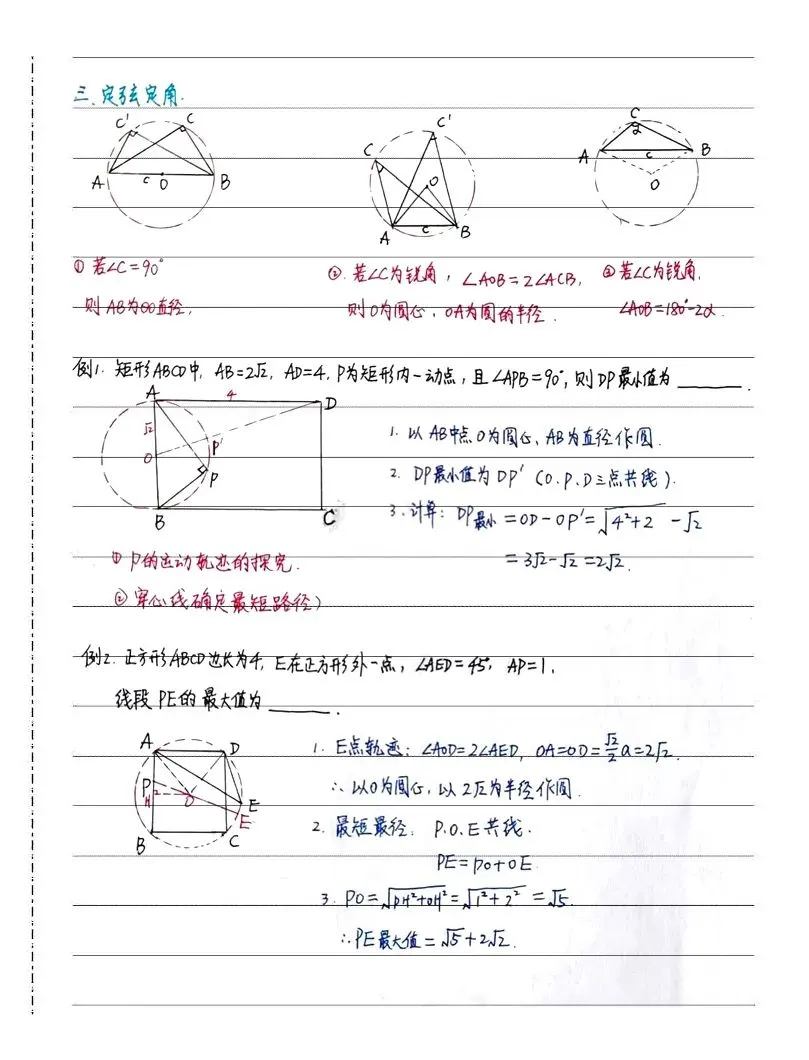 三、定弦定角.
C' C A c O B
C' C O A c B
C α A c B O
① 若∠C=90°
则AB为⊙O直径,
②. 若∠C为锐角, ∠AOB=2∠ACB,
则O为圆心, OA为圆的半径.
③ 若∠C为锐角,
∠AOB=180°-2α.
例1. 矩形ABCD中, AB=2√2, AD=4, P为矩形内一动点, 且∠APB=90°, 则DP最小值为______.
A 4 D
√2
O P'
P
B C
1. 以AB中点O为圆心, AB为直径作圆.
2. DP最小值为DP' (O.P.D三点共线).
3. 计算: DP最小=OD-OP'=√(4²+2) -√2
=3√2-√2=2√2.
① P的运动轨迹的探究.
② 穿心线确定最短路径)
例2. 正方形ABCD边长为4, E在正方形外一点, ∠AED=45°, AP=1,
线段PE的最大值为______.
A D
P
H 2 O E
E'
B C
1. E点轨迹: ∠AOD=2∠AED, OA=OD=√2/2a=2√2.
∴以O为圆心, 以2√2为半径作圆.
2. 最短最径: P.O.E共线.
PE=PO+OE.
3. PO=√(PH²+OH²)=√(1²+2²) =√5.
∴PE最大值=√5+2√2.